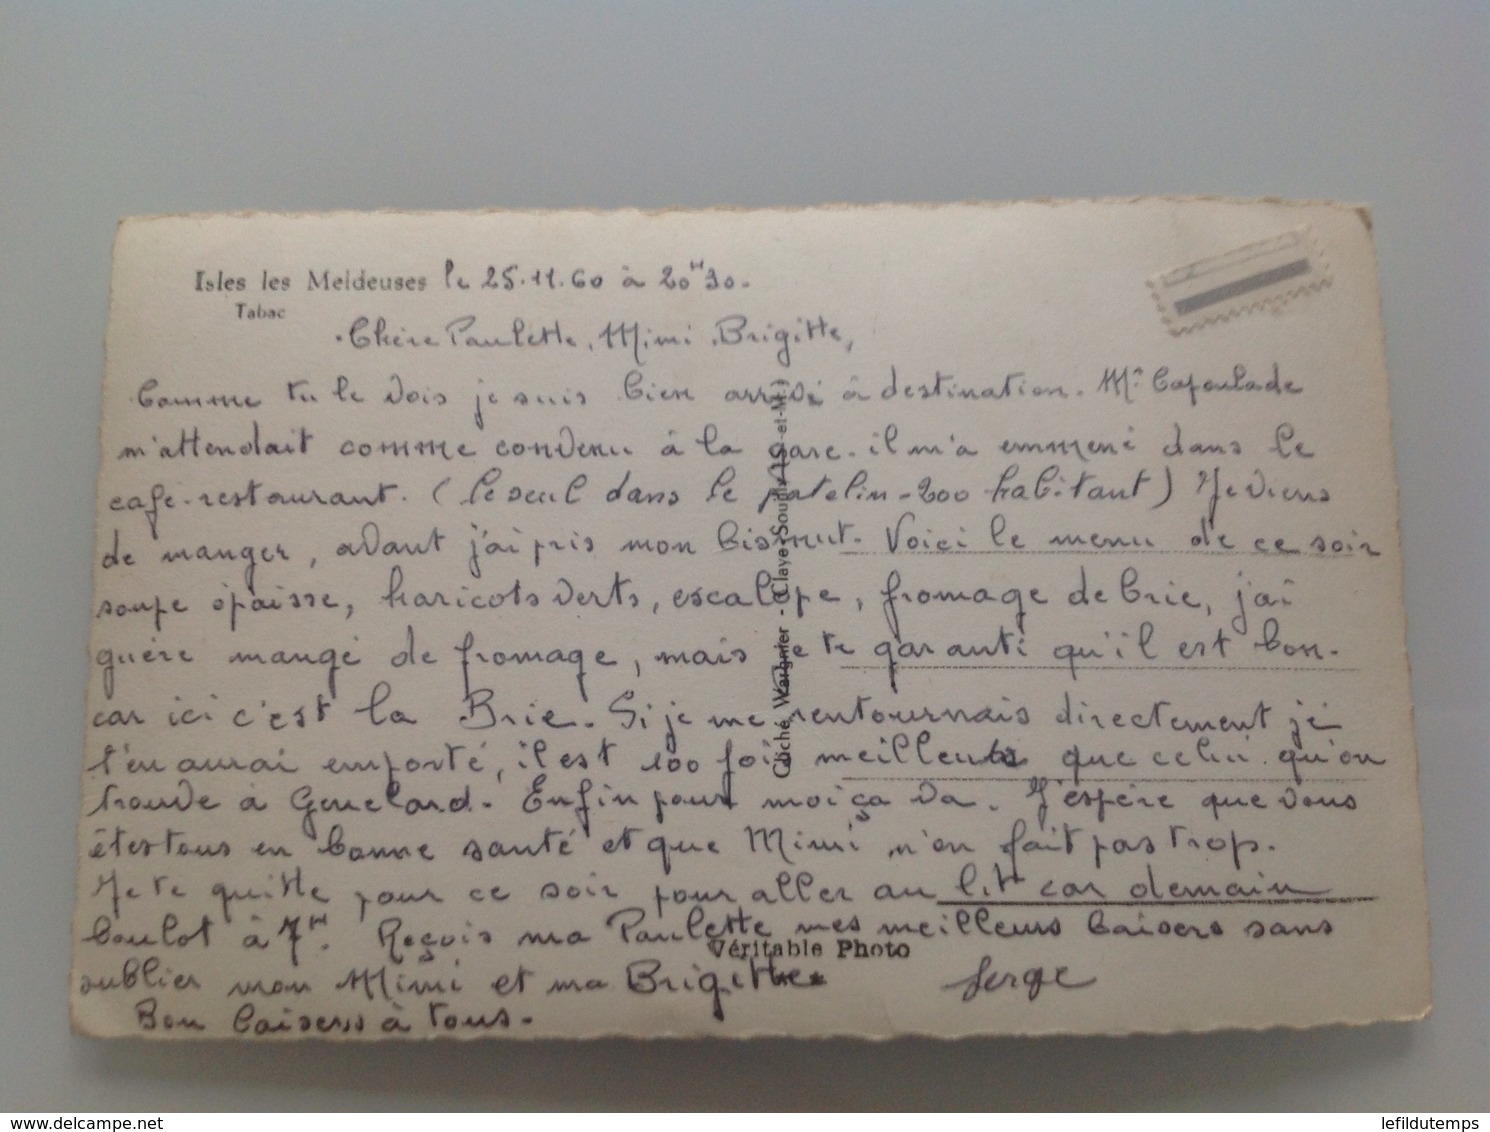 Isles les Meldeuses le 25.11.60 à 20H30.
Tabac
Chère Paulette, Mimi, Brigitte,
Comme tu le vois je suis bien arrivé à destination. Mr Capoulade
m'attendait comme convenu à la gare. il m'a emmené dans le
café-restaurant. (le seul dans le patelin - 200 habitant) Je viens
de manger, avant j'ai pris mon bismut. Voici le menu de ce soir
soupe épaisse, haricots verts, escalope, fromage de brie, j'ai
guère mangé de fromage, mais je te garanti qu'il est bon.
car ici c'est la Brie. Si je me rentournais directement je
t'en aurai emporté, il est 100 fois meilleur que celui qu'on
trouve à Genelard. Enfin pour moi ça va. J'espère que vous
êtes tous en bonne santé et que Mimi n'en fait pas trop.
Je te quitte pour ce soir pour aller au lit car demain
boulot à 7H. Reçois ma Paulette mes meilleurs baisers sans
oublier mon Mimi et ma Brigitte.
Serge
Bon baisers à tous.
Cliché Wargnier - (Claye-Souilly (S.-et-M.)
Véritable Photo
delcampe.net
lefildutemps